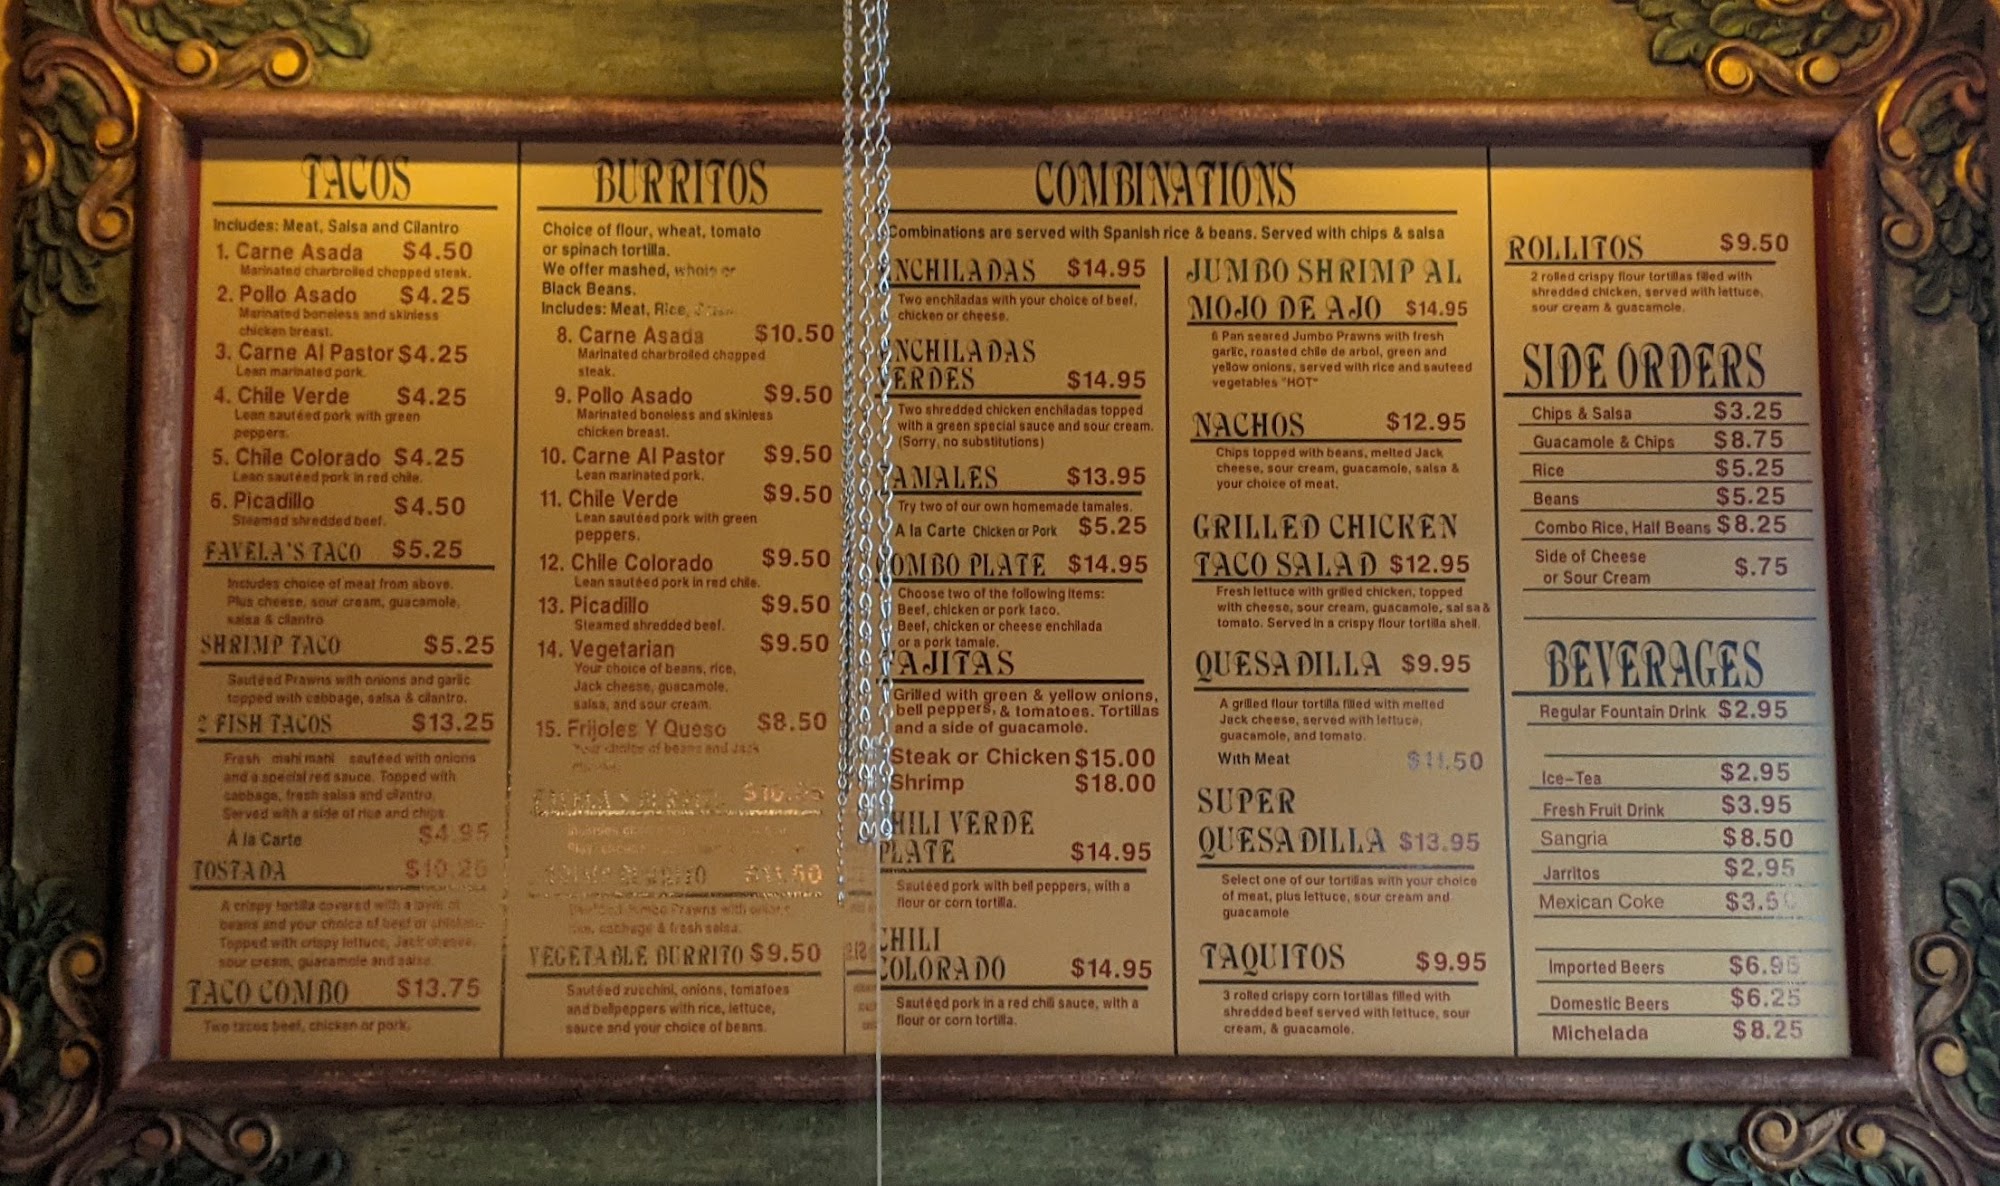 TACOS
Includes: Meat, Salsa and Cilantro
1. Carne Asada $4.50
Marinated charbroiled chopped steak.
2. Pollo Asado $4.25
Marinated boneless and skinless
chicken breast.
3. Carne Al Pastor $4.25
Lean marinated pork.
4. Chile Verde $4.25
Lean sautéed pork with green
peppers.
5. Chile Colorado $4.25
Lean sautéed pork in red chile.
6. Picadillo $4.50
Steamed shredded beef.
FAVELA'S TACO $5.25
Includes choice of meat from above.
Plus cheese, sour cream, guacamole,
salsa & cilantro
SHRIMP TACO $5.25
Sautéed Prawns with onions and garlic
topped with cabbage, salsa & cilantro.
2 FISH TACOS $13.25
Fresh mahi mahi sautéed with onions
and a special red sauce. Topped with
cabbage, fresh salsa and cilantro.
Served with a side of rice and chips
À la Carte $4.95
TOSTADA $10.25
A crispy tortilla covered with a layer of
beans and your choice of beef or chicken.
Topped with crispy lettuce, Jack cheese,
sour cream, guacamole and salsa.
TACO COMBO $13.75
Two tacos beef, chicken or pork.
BURRITOS
Choice of flour, wheat, tomato
or spinach tortilla.
We offer mashed, whole or
Black Beans.
Includes: Meat, Rice,
8. Carne Asada $10.50
Marinated charbroiled chopped
steak.
9. Pollo Asado $9.50
Marinated boneless and skinless
chicken breast.
10. Carne Al Pastor $9.50
Lean marinated pork.
11. Chile Verde $9.50
Lean sautéed pork with green
peppers.
12. Chile Colorado $9.50
Lean sautéed pork in red chile.
13. Picadillo $9.50
Steamed shredded beef.
14. Vegetarian $9.50
Your choice of beans, rice,
Jack cheese, guacamole,
salsa, and sour cream.
15. Frijoles Y Queso $8.50
Your choice of beans and Jack
BURRITO
Prawns with
cabbage & fresh salsa.
VEGETABLE BURRITO $9.50
Sautéed zucchini, onions, tomatoes
and bellpeppers with rice, lettuce,
sauce and your choice of beans.
COMBINATIONS
Combinations are served with Spanish rice & beans. Served with chips & salsa
NCHILADAS $14.95
Two enchiladas with your choice of beef,
chicken or cheese.
NCHILADAS
ERDES $14.95
Two shredded chicken enchiladas topped
with a green special sauce and sour cream.
(Sorry, no substitutions)
AMALES $13.95
Try two of our own homemade tamales.
A la Carte Chicken or Pork $5.25
OMBO PLATE $14.95
Choose two of the following Items:
Beef, chicken or pork taco.
Beef, chicken or cheese enchilada
or a pork tamale.
FAJITAS
Grilled with green & yellow onions,
bell peppers, & tomatoes. Tortillas
and a side of guacamole.
Steak or Chicken $15.00
Shrimp $18.00
HILI VERDE
PLATE $14.95
Sautéed pork with bell peppers, with a
flour or corn tortilla.
CHILI
COLORADO $14.95
Sautéed pork in a red chili sauce, with a
flour or corn tortilla.
JUMBO SHRIMP AL
MOJO DE AJO $14.95
6 Pan seared Jumbo Prawns with fresh
garlic, roasted chile de arbol, green and
yellow onions, served with rice and sauteed
vegetables "HOT"
NACHOS $12.95
Chips topped with beans, melted Jack
cheese, sour cream, guacamole, salsa &
your choice of meat.
GRILLED CHICKEN
TACO SALAD $12.95
Fresh lettuce with grilled chicken, topped
with cheese, sour cream, guacamole, salsa &
tomato. Served in a crispy flour tortilla shell.
QUESADILLA $9.95
A grilled flour tortilla filled with melted
Jack cheese, served with lettuce,
guacamole, and tomato.
With Meat $11.50
SUPER
QUESADILLA $13.95
Select one of our tortillas with your choice
of meat, plus lettuce, sour cream and
guacamole
TAQUITOS $9.95
3 rolled crispy corn tortillas filled with
shredded beef served with lettuce, sour
cream, & guacamole.
ROLLITOS $9.50
2 rolled crispy flour tortillas filled with
shredded chicken, served with lettuce,
sour cream & guacamole.
SIDE ORDERS
Chips & Salsa $3.25
Guacamole & Chips $8.75
Rice $5.25
Beans $5.25
Combo Rice, Half Beans $8.25
Side of Cheese
or Sour Cream $.75
BEVERAGES
Regular Fountain Drink $2.95
Ice-Tea $2.95
Fresh Fruit Drink $3.95
Sangria $8.50
Jarritos $2.95
Mexican Coke $3.50
Imported Beers $6.95
Domestic Beers $6.25
Michelada $8.25